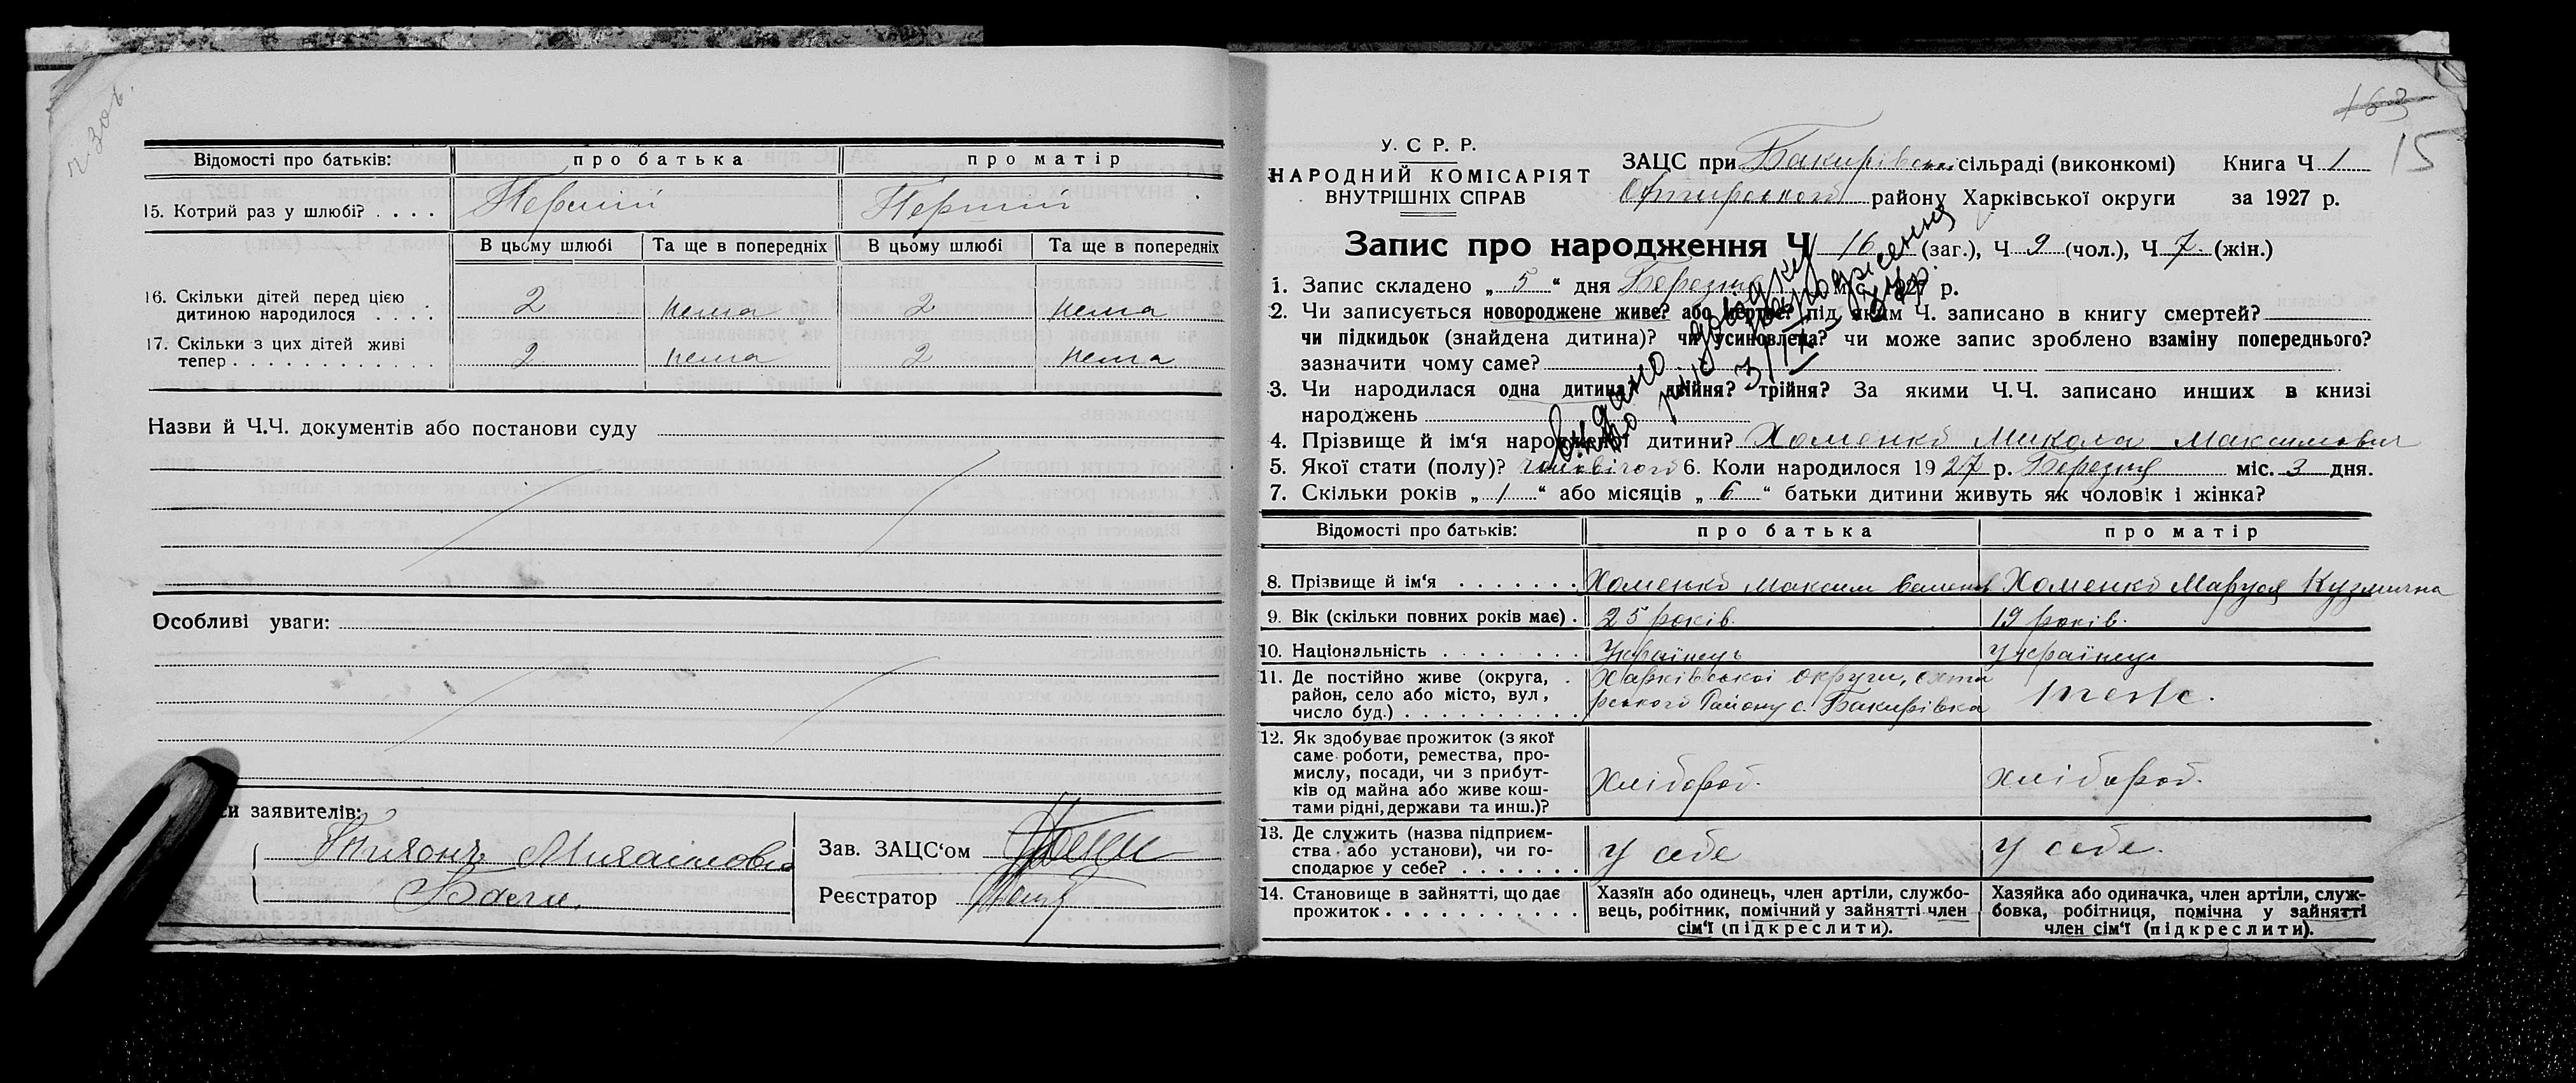 Відомості про батьків: про батька про матір
15. Котрий раз у шлюбі? . . . . Перший Перший
В цьому шлюбі Та ще в попередніх В цьому шлюбі Та ще в попередніх
16. Скільки дітей перед цією
дитиною народилося . . . . 2 нема 2 нема
17. Скільки з цих дітей живі
тепер . . . . . . . . . . . . . 2 нема 2 нема
Назви й Ч.Ч. документів або постанови суду
Особливі уваги:
си заявителів:
Зав. ЗАЦС‘ом
Бага
Реєстратор
163
15
У. С Р. Р.
НАРОДНИЙ КОМІСАРІЯТ
ВНУТРІШНІХ СПРАВ
ЗАЦС при Бакирівській сільраді (виконкомі) Книга Ч 1
Охтирського району Харківської округи за 1927 р.
Запис про народження Ч 16 (заг.), Ч 9 (чол.), Ч 7 (жін.)
1. Запис складено „ 5 “ дня Березня міс. 1927 р.
2. Чи записується новороджене живе? або мертве? під яким Ч. записано в книгу смертей?
чи підкидьок (знайдена дитина)? чи усиновлена? чи може запис зроблено взаміну попереднього?
зазначити чому саме?
3. Чи народилася одна дитина? двійня? трійня? За якими Ч.Ч. записано инших в книзі
народжень
Видано довідку
про народження
4. Прізвище й ім‘я народженої дитини? Хоменко Микола Максимович
5. Якої стати (полу)? чоловічого 6. Коли народилося 1927 р. Березня міс. 3 дня.
7. Скільки років „ 1 “ або місяців „ 6 “ батьки дитини живуть як чоловік і жінка?
Відомості про батьків: про батька про матір
8. Прізвище й ім‘я . . . . . . . Хоменко Максим Хоменко Маруся Кузмична
9. Вік (скільки повних років має) . 25 років. 19 років.
10. Національність . . . . . . . . Українець українець
11. Де постійно живе (округа, . Харківської округи, охти
район, село або місто, вул, рського Району с. Бакирівка теж.
число буд.) . . . . . . . . . .
12. Як здобуває прожиток (з якої
саме роботи, ремества, про-
мислу, посади, чи з прибут-
ків од майна або живе кош- Хлібороб. хлібороб.
тами рідні, держави та инш.)?
13. Де служить (назва підприєм-
ства або установи), чи го- у себе у себе.
сподарює у себе? . . . . . . .
14. Становище в зайнятті, що дає Хазяїн або одинець, член артіли, службо- Хазяйка або одиначка, член артіли, служ-
прожиток . . . . . . . . . . . вець, робітник, помічний у зайнятті член бовка, робітниця, помічна у зайнятті
сім‘ї (підкреслити). член сім‘ї (підкреслити).